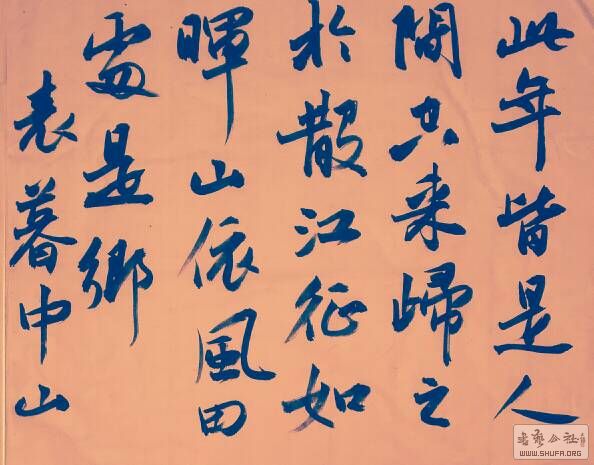 此年皆是人
間来歸之
於散江征如
暉山依風田
是鄉
表暮中山
书艺公社
WWW.SHUFA.ORG